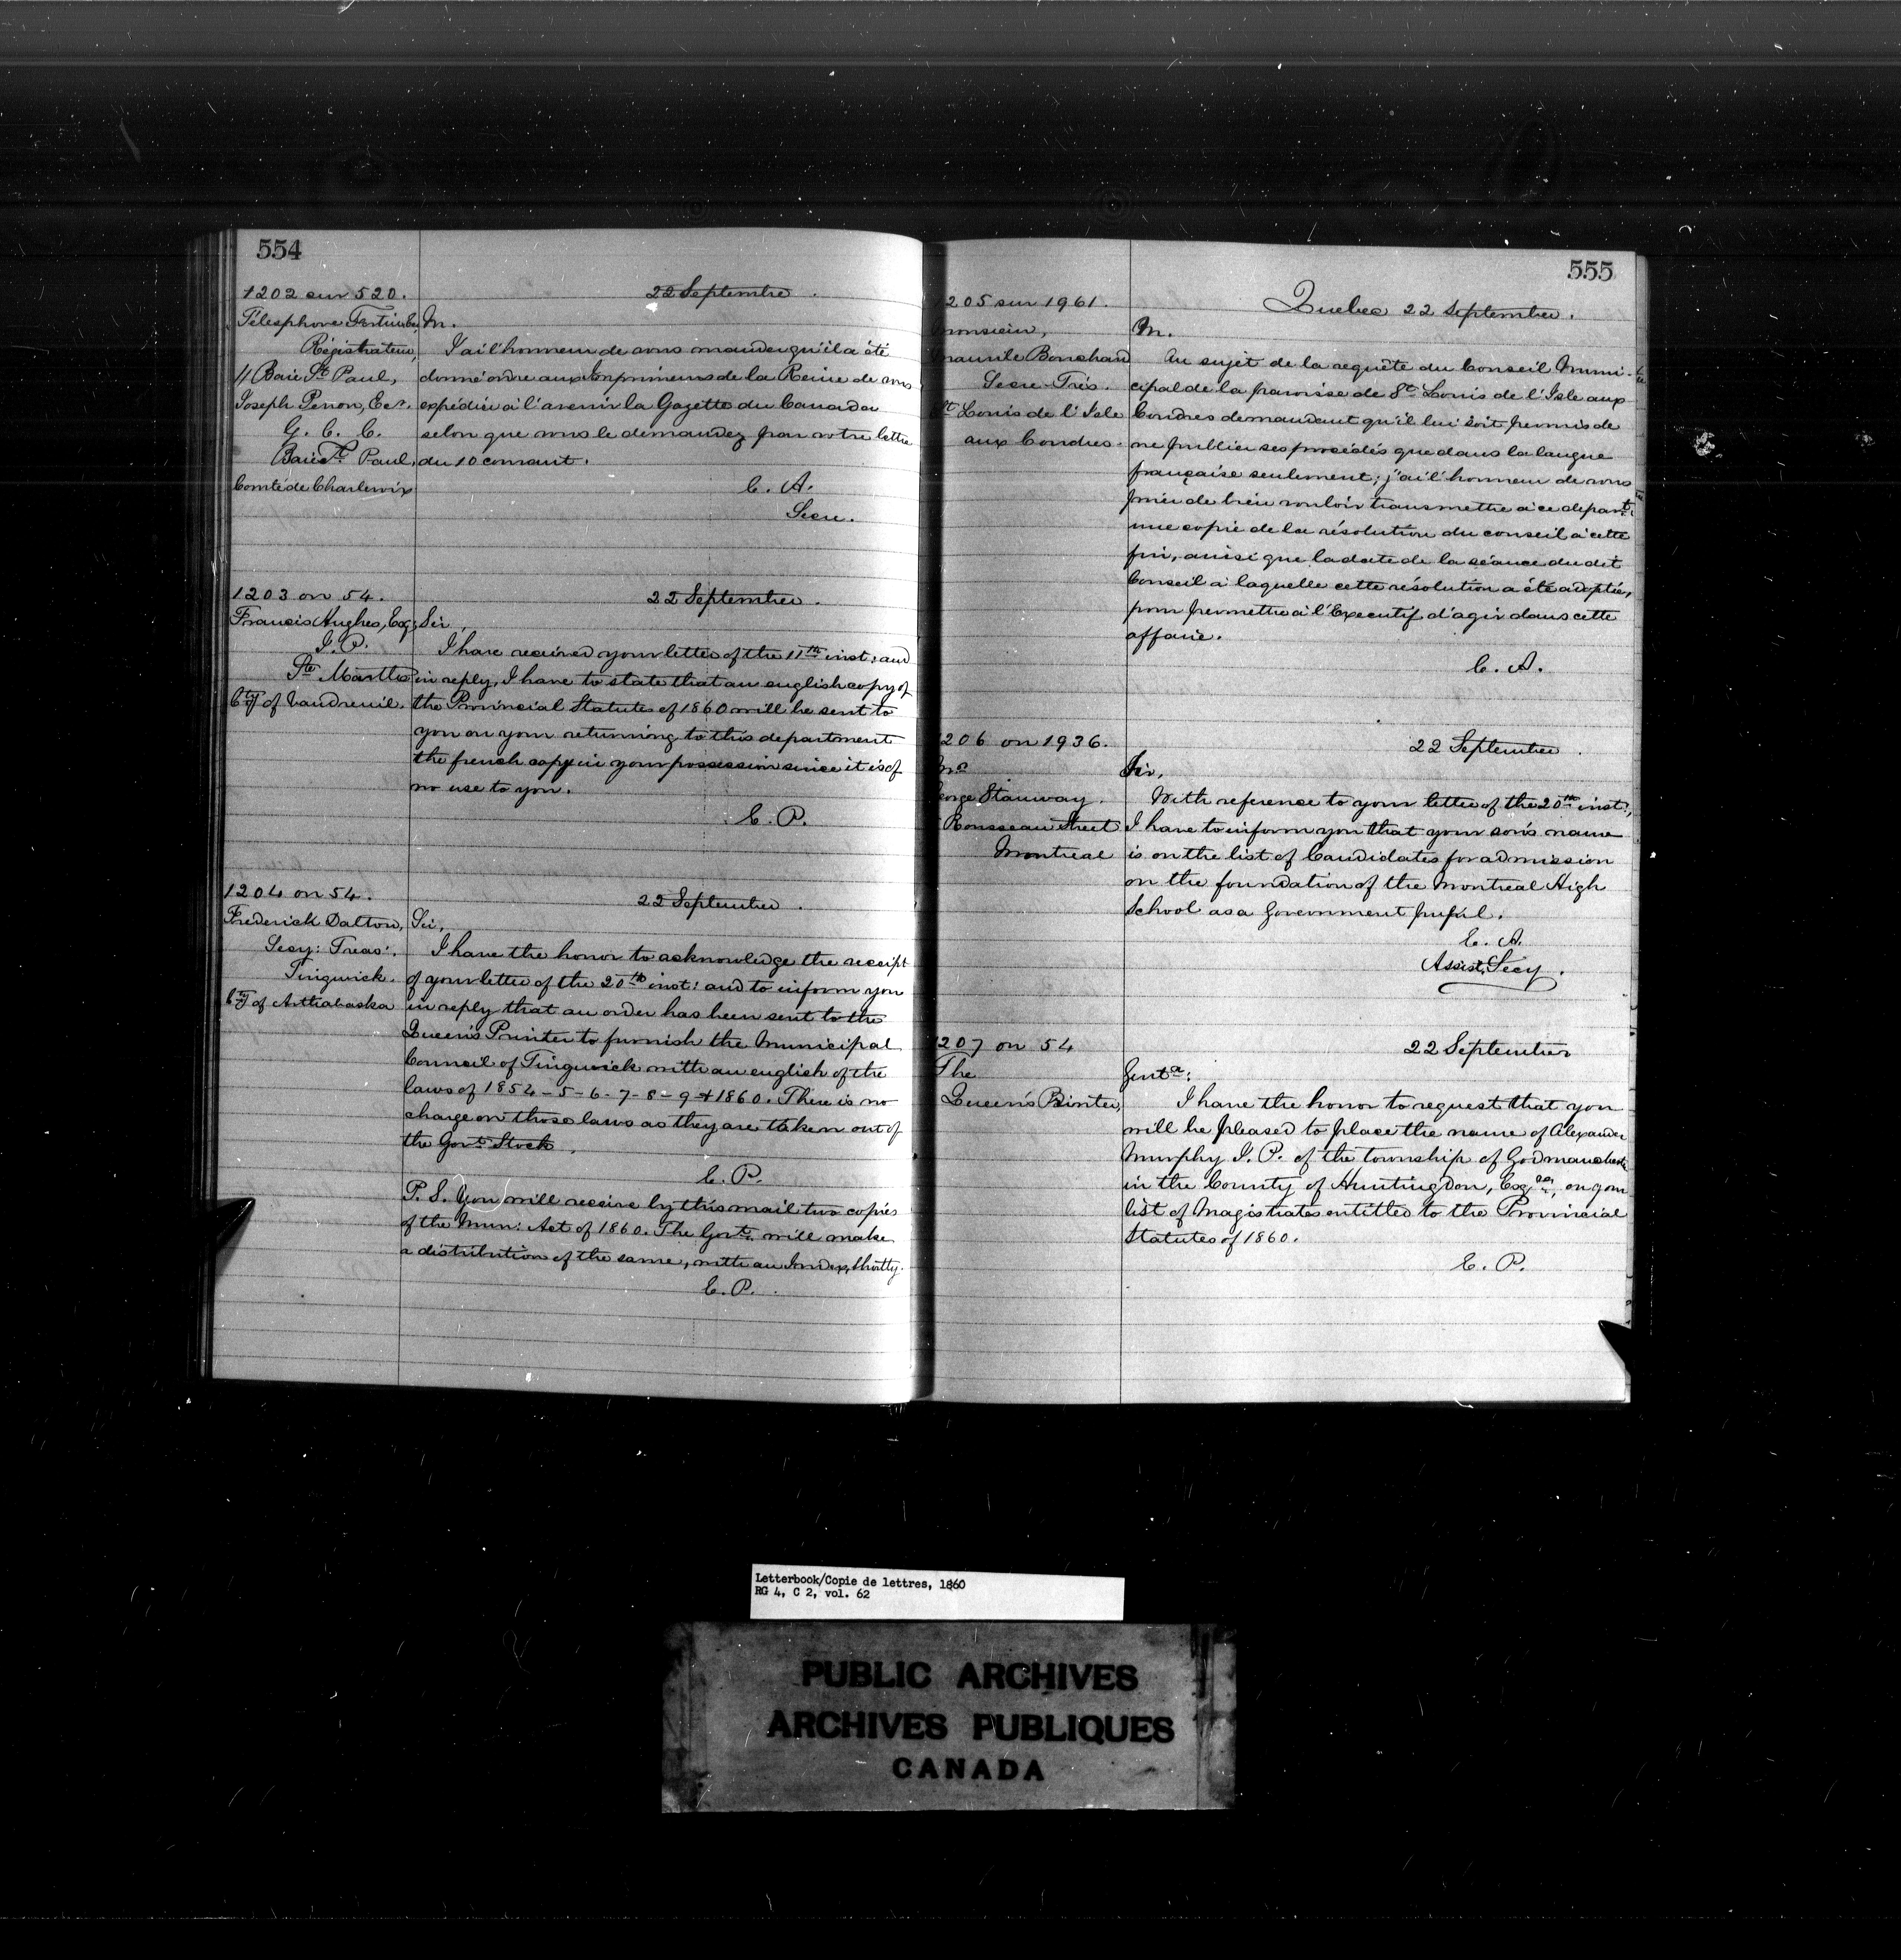 554
1202 sur 520.
22 Septembre.
Télesphore Fortier, Ec,
Régistrateur,
// Baie St. Paul,
Joseph Perron, Ecr.
G. C. C.
Baie St. Paul,
Comté de Charlevoix
M.
J'ai l'honneur de vous mander qu'il a été
donné ordre aux Imprimeurs de la Reine de vous
expédier à l'avenir la Gazette du Canada
selon que vous le demandez par votre lettre
du 10 courant.
C. A.
Secre.
1203 on 54.
22 September.
Francis Hughes, Esq;
J. P.
Ste. Marthe
Cty of Vaudreuil.
Sir,
I have received your letter of the 11th inst; and
in reply, I have to state that an english copy of
the Provincial Statutes of 1860 will be sent to
you on your returning to this department
the french copy in your possession since it is of
no use to you.
C. P.
1204 on 54.
22 September.
Frederick Dalton,
Secy: Treas:
Tingwick.
Cty of Arthabaska
Sir,
I have the honor to acknowledge the receipt
of your letter of the 20th inst: and to inform you
in reply that an order has been sent to the
Queen's Printer to furnish the Municipal
Council of Tingwick with an english of the
laws of 1854-5-6-7-8-9 & 1860. There is no
charge on those laws as they are taken out of
the Govt. Stock.
C. P.
P. S. You will receive by this mail two copies
of the Mun: Act of 1860. The Govt. will make
a distribution of the same, with an Index, shortly.
C. P.
555
1205 sur 1961.
Quebec 22 September.
Monsieur,
Maurile Bouchard
Secre-Trés.
St Louis de l'Isle
aux Coudres.
M.
Au sujet de la requête du Conseil Muni-
cipal de la paroisse de St. Louis de l'Isle aux
Coudres demandant qu'il lui soit permis de
ne publier ses procédés que dans la langue
française seulement; j'ai l'honneur de vous
prier de bien vouloir transmettre à ce départt.
une copie de la résolution du conseil à cette
fin, ainsi que la date de la séance du dit
Conseil à laquelle cette résolution a été adoptée,
pour permettre à l'Executif d'agir dans cette
affaire.
C. A.
1206 on 1936.
22 September.
Mr
George Stanway.
Rousseau Street
Montreal
Sir,
With reference to your letter of the 20th inst:,
I have to inform you that your son's name
is on the list of Candidates for admission
on the foundation of the Montreal High
School as a Government pupil.
E. A.
Assist. Secy.
1207 on 54
22 September
The
Queen's Printer,
Gentn:
I have the honor to request that you
will be pleased to place the name of Alexander
Murphy J. P. of the township of Godmanchester
in the County of Huntingdon, Esq, on your
list of Magistrates entitled to the Provincial
Statutes of 1860.
C. P.
Letterbook/Copie de lettres, 1860
RG 4, C 2, vol. 62
PUBLIC ARCHIVES
ARCHIVES PUBLIQUES
CANADA